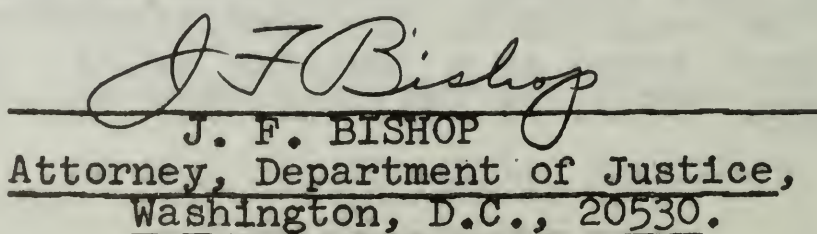 J F Bishop
J. F. BISHOP
Attorney, Department of Justice,
Washington, D.C., 20530.